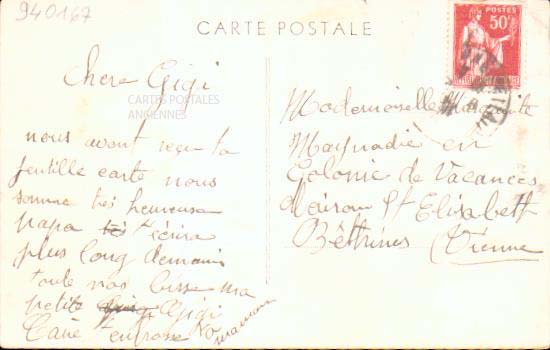 940167
CARTE POSTALE
POSTES
50c
Chere Gigi
CARTES POSTALES
ANCIENNES
nous avont reçu ta
gentille carte nous
somme très heureuse
papa t'écrira
plus long demain
toute nos bisse ma
petite Gigi
t'enbrasse
maman
Mademoiselle Marguerite
Maynadie en
Colonie de Vacances
Maison St Elisabeth
Béthines (Vienne